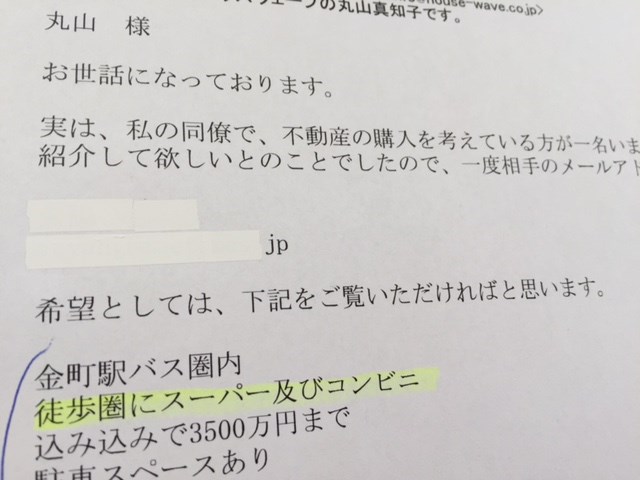 house-wave.co.jp>
ウェーブの丸山真知子です。
丸山 様
お世話になっております。
実は、私の同僚で、不動産の購入を考えている方が一名いま
紹介して欲しいとのことでしたので、一度相手のメールアド
jp
希望としては、下記をご覧いただければと思います。
金町駅バス圏内
徒歩圏にスーパー及びコンビニ
込み込みで3500万円まで
駐車スペースあり